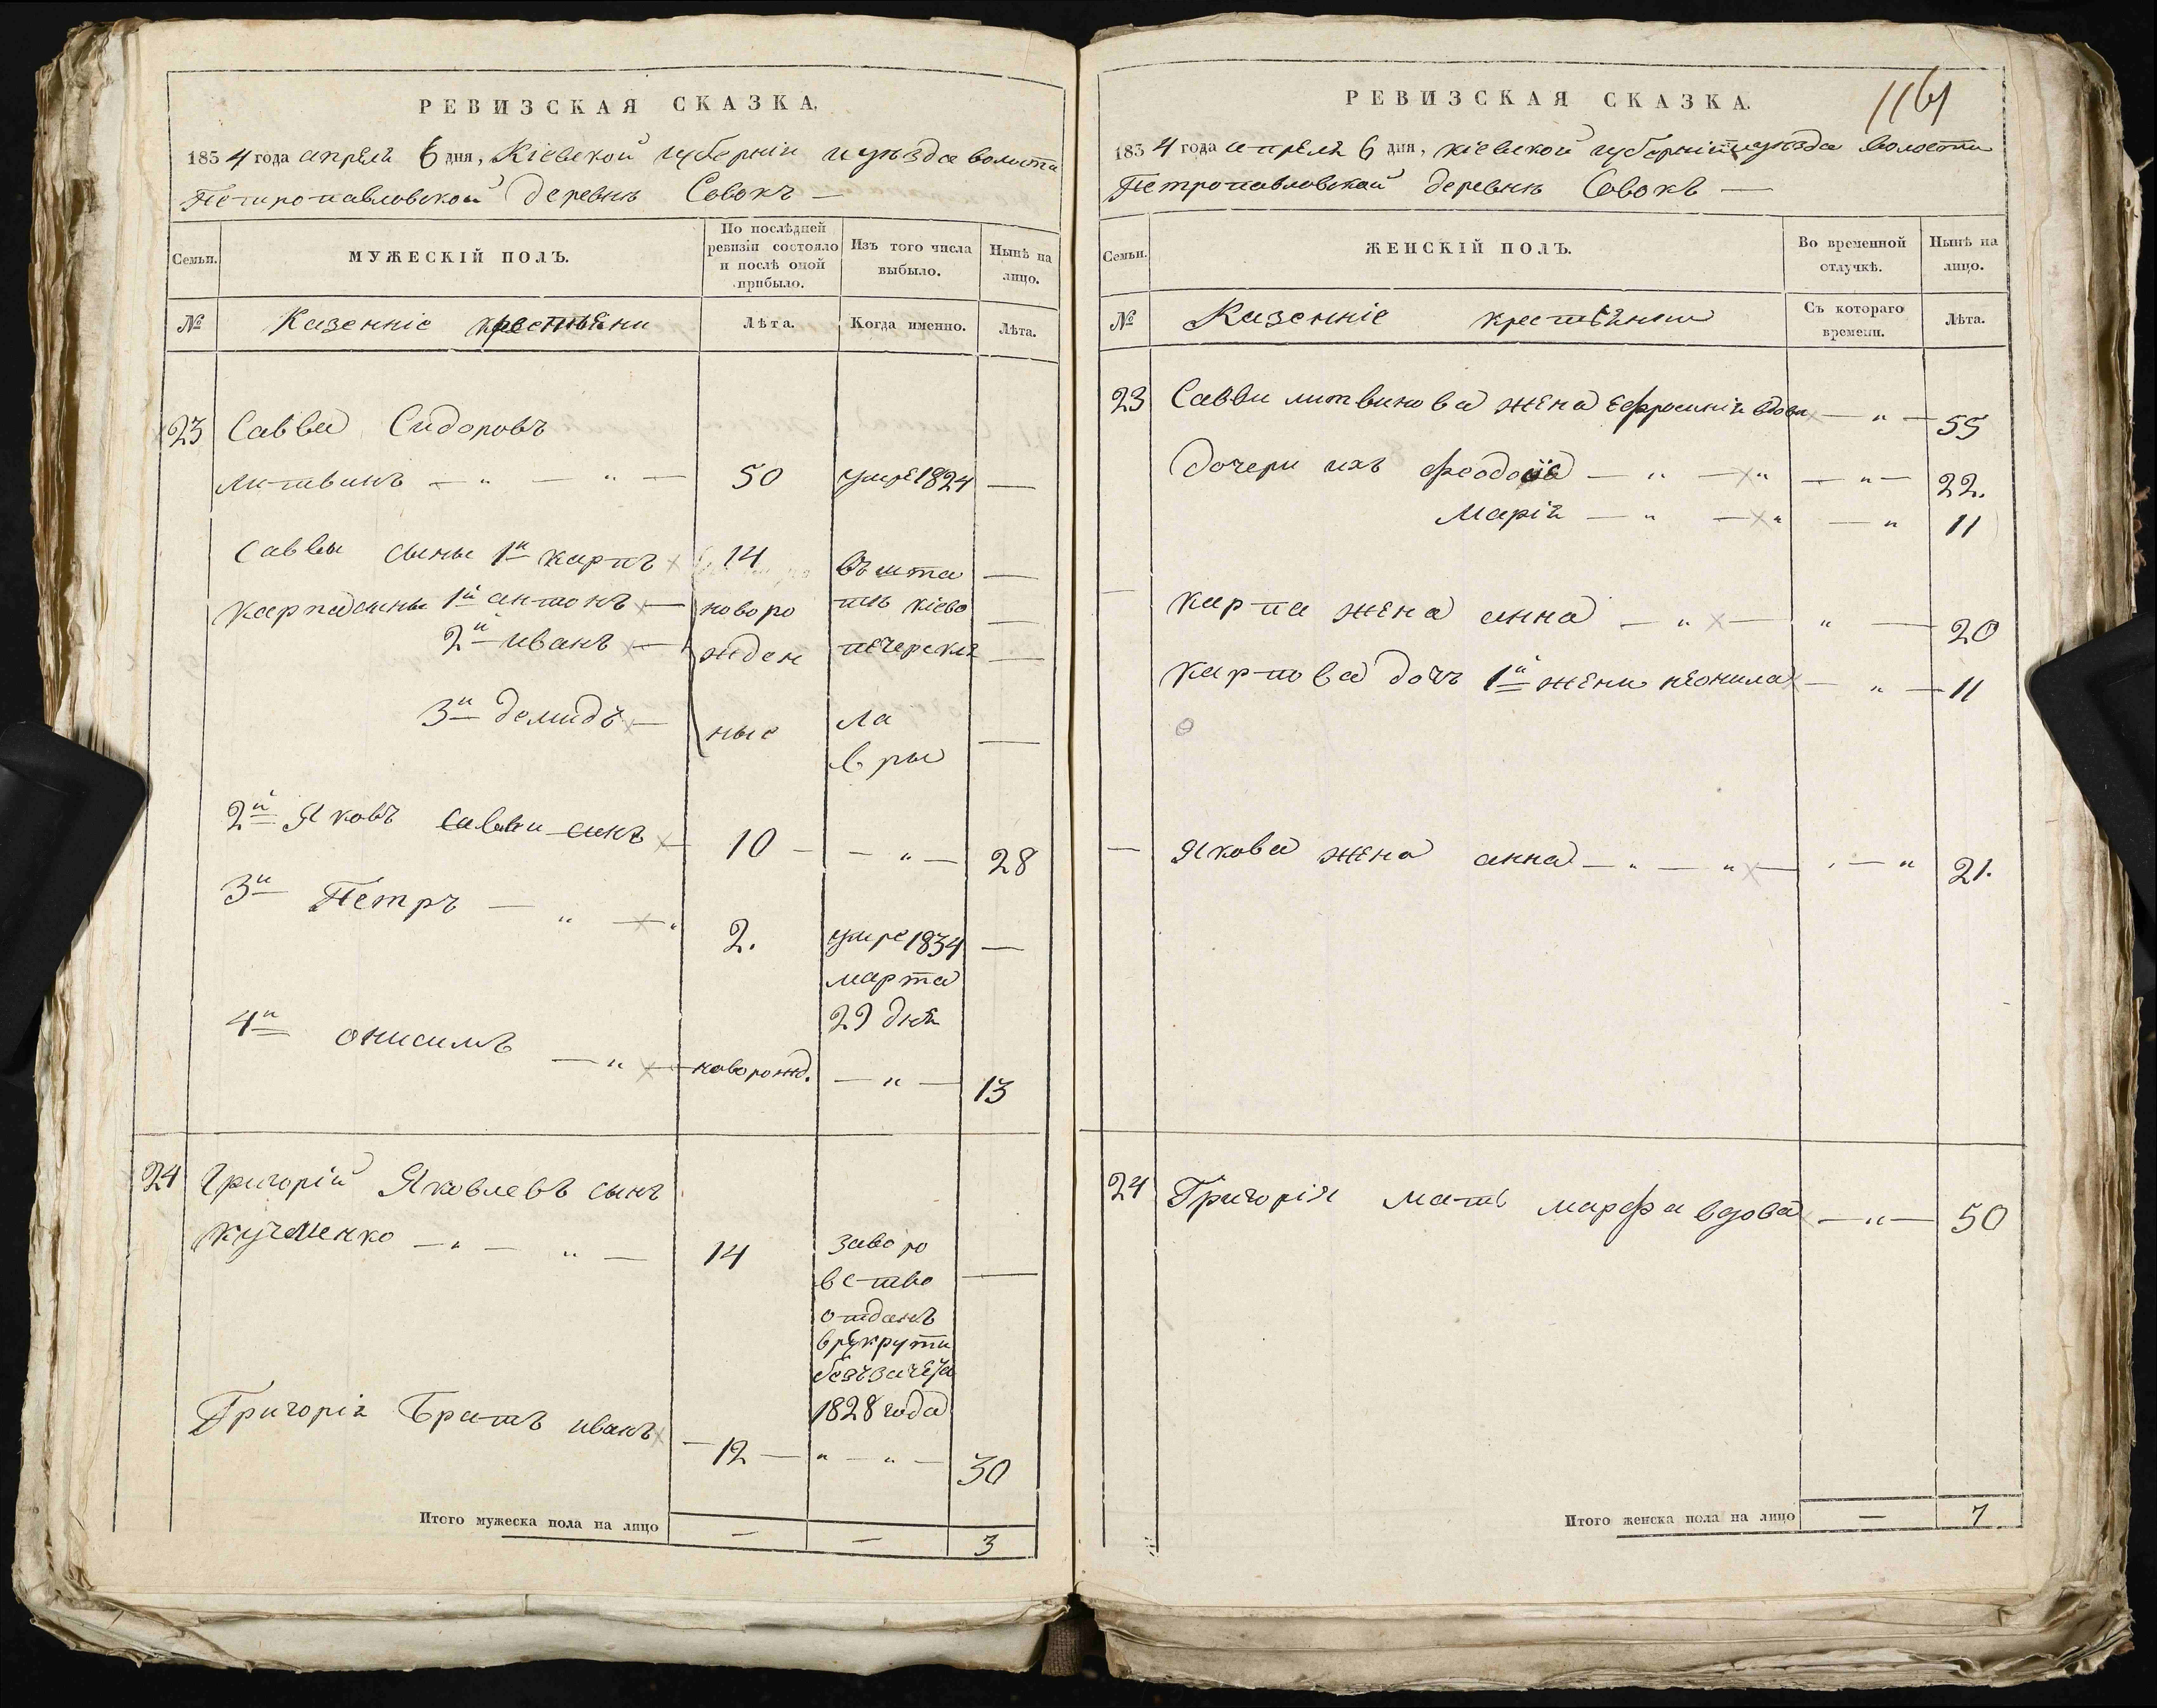 РЕВИЗСКАЯ СКАЗКА.
1834 года апреля 6 дня, Кіевской губерніи и уезда волости
Петропавловской деревнѣ Совокъ —
Семьи.
МУЖЕСКІЙ ПОЛЪ.
По послѣдней ревизіи состояло и послѣ оной прибыло.
Изъ того числа выбыло.
Нынѣ на лицо.
№
Казенніе крестьяни
Лѣта.
Когда именно.
Лѣта.
23 Савва Сидоровъ
литвинъ — „ — „ — 50 умре 1824 —
Саввы сыны 1й карпъ 14 въ шта —
Карпа сыны 1й антонъ — новоро тъ кіево —
2й иванъ — жден печерскія —
3й демидъ — ные ла —
вры
2й Яковъ Савви синъ 10 — — „ — 28
3й Петръ — „ — „ 2. умре 1834 —
марта
29 дня
4й онисимъ — „ — новорожд. — „ — 13
24 Григорій Яковлевъ сынъ
Кучменко — „ — „ — 14 заворо
вство —
отданъ
врекрути
безъзачета
1828 года
Григорія Братъ иванъ — 12 — „ — „ — 30
Итого мужеска пола на лицо — — 3
1161
РЕВИЗСКАЯ СКАЗКА.
1834 года апреля 6 дня, кіевской губерніи уезда волости
Петропавловской деревнѣ Совокъ —
Семьи.
ЖЕНСКІЙ ПОЛЪ.
Во временной отлучкѣ.
Нынѣ на лицо.
№
Казенніе крестьянки
Съ котораго времени.
Лѣта.
23 Савви литвинова жена Ефросинія вдова — „ — 55
Дочери ихъ феодосія — „ — „ — „ — 22.
Марія — „ — „ — „ 11
— Карпа жена анна — „ — „ — 20
Карпова дочъ 1й жени неонила — „ — 11
— Якова жена анна — „ — „ — „ — „ 21.
24 Григорія мать марфа вдова — „ — 50
Итого женска пола на лицо — 7